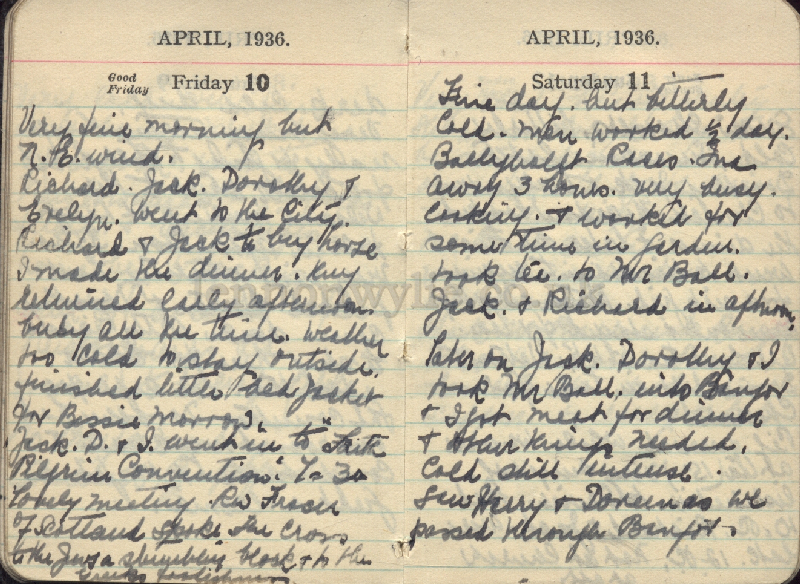 APRIL, 1936.
Good Friday Friday 10
Very fine morning but
N.E. wind.
Richard. Jack. Dorothy &
Evelyn. went to the City.
Richard & Jack to buy horse
I made the dinner. they
returned early afternoon.
busy all the time. weather
too cold to stay outside.
finished little bed jacket
for Bessie Morrow.
Jack. D. & I. went in to "Faith
Pilgrim Convention." 7-30
Lovely meeting. Rev Fraser
of Scotland spoke. the Cross
to the Jews a stumbling block & to the
Greeks foolishness
APRIL, 1936.
Saturday 11
Fine day. but bitterly
Cold. Men worked 1/2 day.
Races.
away 3 hours. very busy.
Cooking. & worked for
some time in garden.
took tea. to Mr Ball.
Jack. & Richard in afternoon.
Later on Jack. Dorothy & I
took Mr Ball. into Bangor
& I got meat for dinner
& other things needed.
Cold still intense.
Saw Harry & Doreen as we
passed through Bangor.
lennonwylie.co.uk